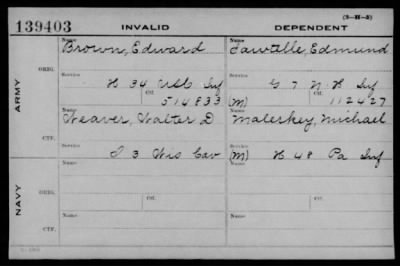 139403 INVALID DEPENDENT (3-H-3)
ARMY
ORIG.
Name Brown, Edward
Name Sawtelle, Edmund
Service H 34 USC Inf
Service G 7 N H Inf
Ctf. 514833
(M) Ctf. 112427
CTF.
Name Weaver, Walter D
Name Maleskey, Michael
Service I 3 Wis Cav
(M) Service H 48 Pa Inf
NAVY
ORIG.
Name
Name
Service
Service
CTF.
Name
Name